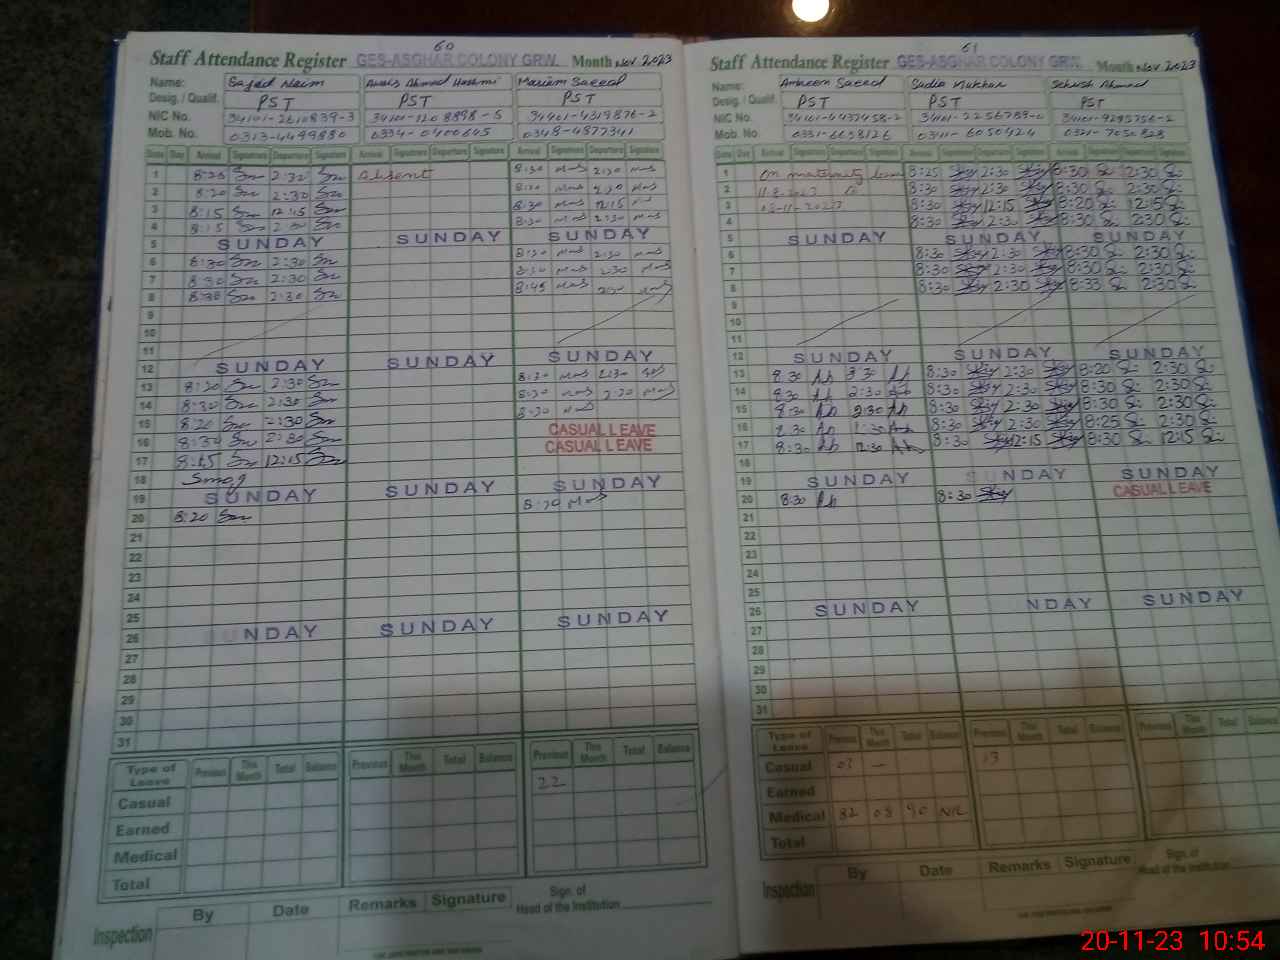 60
Staff Attendance Register GES-ASGHAR COLONY GRW. Month Nov 2023
Name: Sajad Naim Awais Ahmad Hashmi Mariam Saeed
Desig. / Qualif. PST PST PST
NIC No. 34101-2610839-3 34101-1208898-5
Mob. No. 0313-4499880 0334-0400645 0348-4877341
Date Day Arrival Signature Departure Signature Arrival Signature Departure Signature Arrival Signature Departure Signature
1 8:25 2:30 Absent 8:30 2:30
2 8:20 2:30 8:30 2:30
3 8:15 12:15 8:30 12:15
4 8:15 2:30 8:30 2:30
5 SUNDAY SUNDAY SUNDAY
6 8:30 2:30 8:30 2:30
7 8:30 2:30 8:30 2:30
8 8:30 2:30 8:45 2:30
9
10
11
12 SUNDAY SUNDAY SUNDAY
13 8:20 2:30 8:30 2:30
14 8:30 2:30 8:30 2:30
15 8:20 2:30 8:30
16 8:30 2:30 CASUAL LEAVE
17 8:15 12:15 CASUAL LEAVE
18 Smog
19 SUNDAY SUNDAY SUNDAY
20 8:20 8:30
21
22
23
24
25
26 NDAY SUNDAY SUNDAY
27
28
29
30
31
Type of Leave Previous This Month Total Balance Previous This Month Total Balance Previous This Month Total Balance
Casual 22
Earned
Medical
Total
Inspection By Date Remarks Signature Sign. of Head of the Institution
61
Staff Attendance Register GES-ASGHAR COLONY GRW. Month Nov 2023
Name: Ambreen Saeed Sadia Mukhtar Sehrish Ahmad
Desig. / Qualif. PST PST PST
NIC No. 34101-4437458-2 34101-2256789-0 34101-9295756-2
Mob. No. 0331-6658126 0341-6050424 0321-7050828
Date Day Arrival Signature Departure Signature Arrival Signature Departure Signature Arrival Signature Departure Signature
1 On maternity leave 8:25 2:30 8:30 2:30
2 to 8:30 2:30 8:30 2:30
3 8:30 12:15 8:20 12:15
4 8:30 2:30 8:30 2:30
5 SUNDAY SUNDAY SUNDAY
6 8:30 2:30 8:30 2:30
7 8:30 2:30 8:30 2:30
8 8:30 2:30 8:33 2:30
9
10
11
12 SUNDAY SUNDAY SUNDAY
13 8:30 2:30 8:30 2:30 8:20 2:30
14 8:30 2:30 8:30 2:30 8:30 2:30
15 8:30 2:30 8:30 2:30 8:30 2:30
16 8:30 2:30 8:30 2:30 8:25 2:30
17 8:30 12:30 8:30 12:15 8:30 12:15
18
19 SUNDAY NDAY SUNDAY
20 8:30 8:30 CASUAL LEAVE
21
22
23
24
25
26 SUNDAY NDAY SUNDAY
27
28
29
30
31
Type of Leave Previous This Month Total Balance Previous This Month Total Balance Previous This Month Total Balance
Casual 03 — 13
Earned
Medical 82 08 90 NIL
Total
Inspection By Date Remarks Signature Sign. of Head of the Institution
20-11-23 10:54